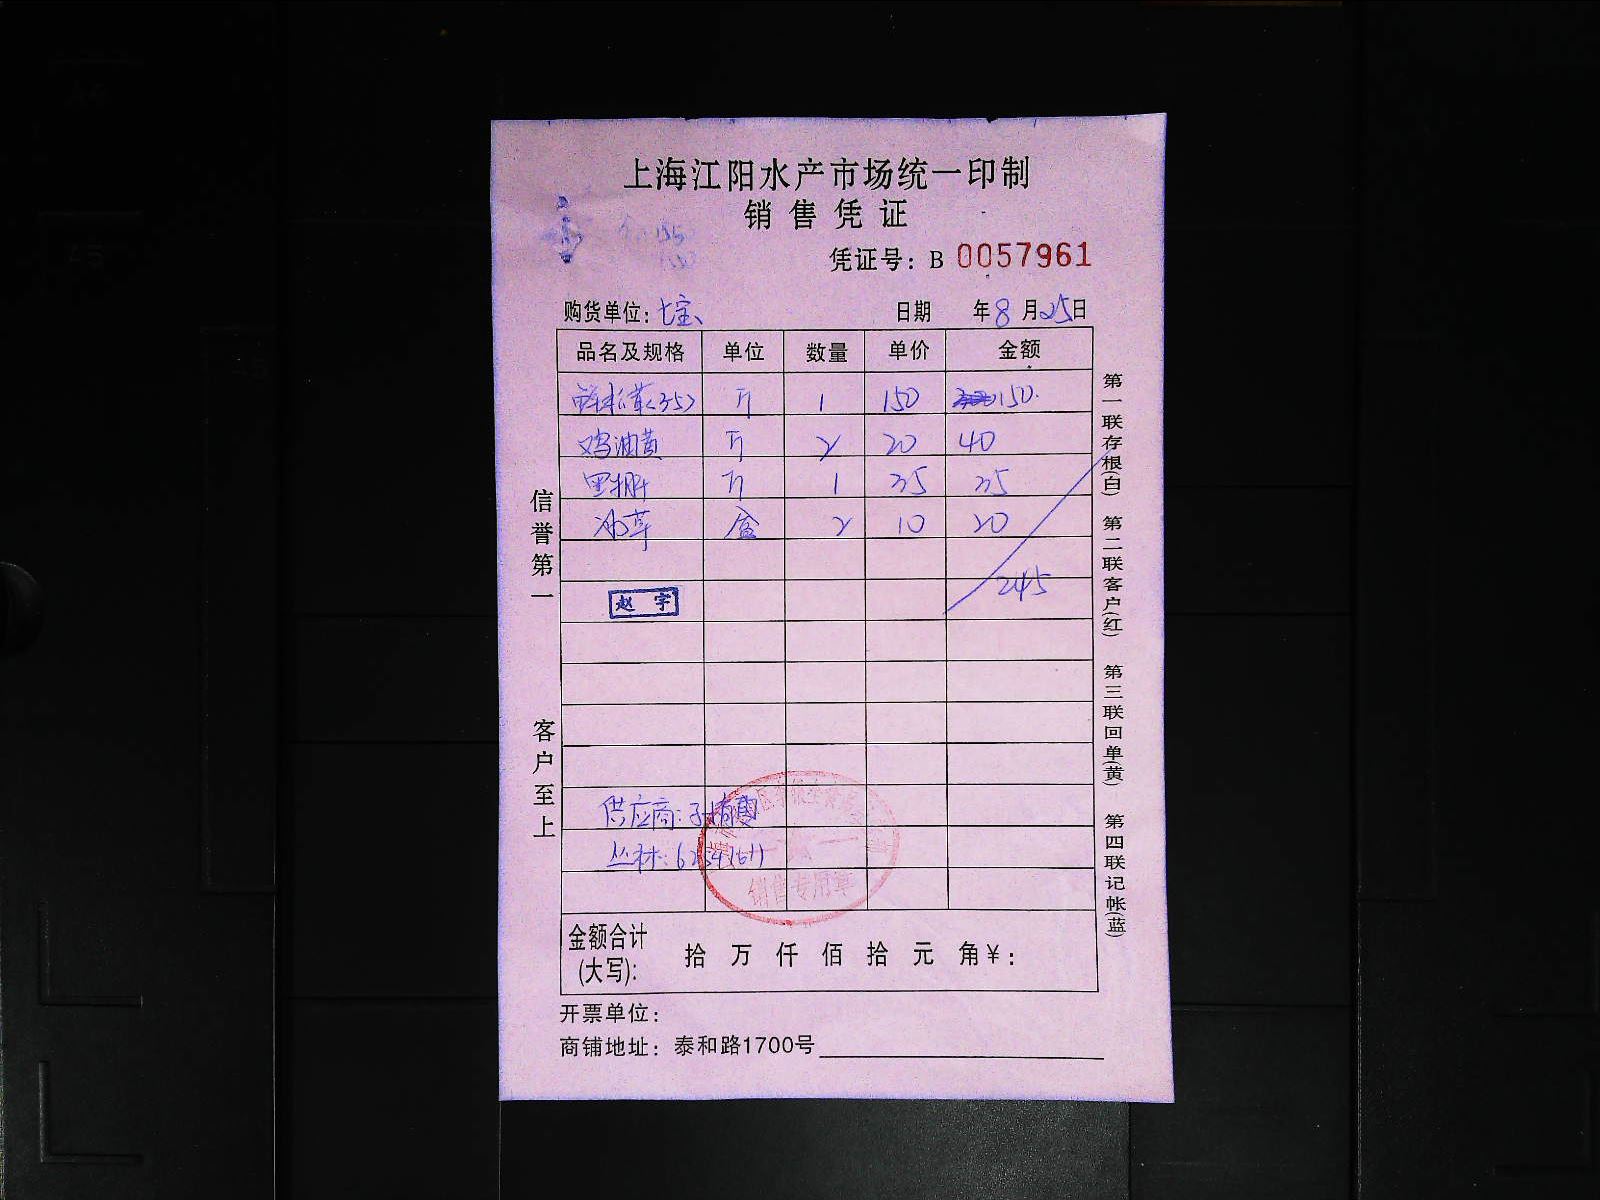 上海江阳水产市场统一印制
销售凭证
凭证号：B 0057961
购货单位：七宝
日期 年8月25日
品名及规格 单位 数量 单价 金额
鲜松茸<35> 斤 1 150 150
鸡油黄 斤 2 20 40
斤 1 35 35
冰草 盒 2 10 20
245
赵宇
供应商：
丛林：
销售专用章
金额合计(大写)： 拾 万 仟 佰 拾 元 角￥：
开票单位：
商铺地址：泰和路1700号
信誉第一 客户至上
第一联存根(白) 第二联客户(红) 第三联回单(黄) 第四联记帐(蓝)